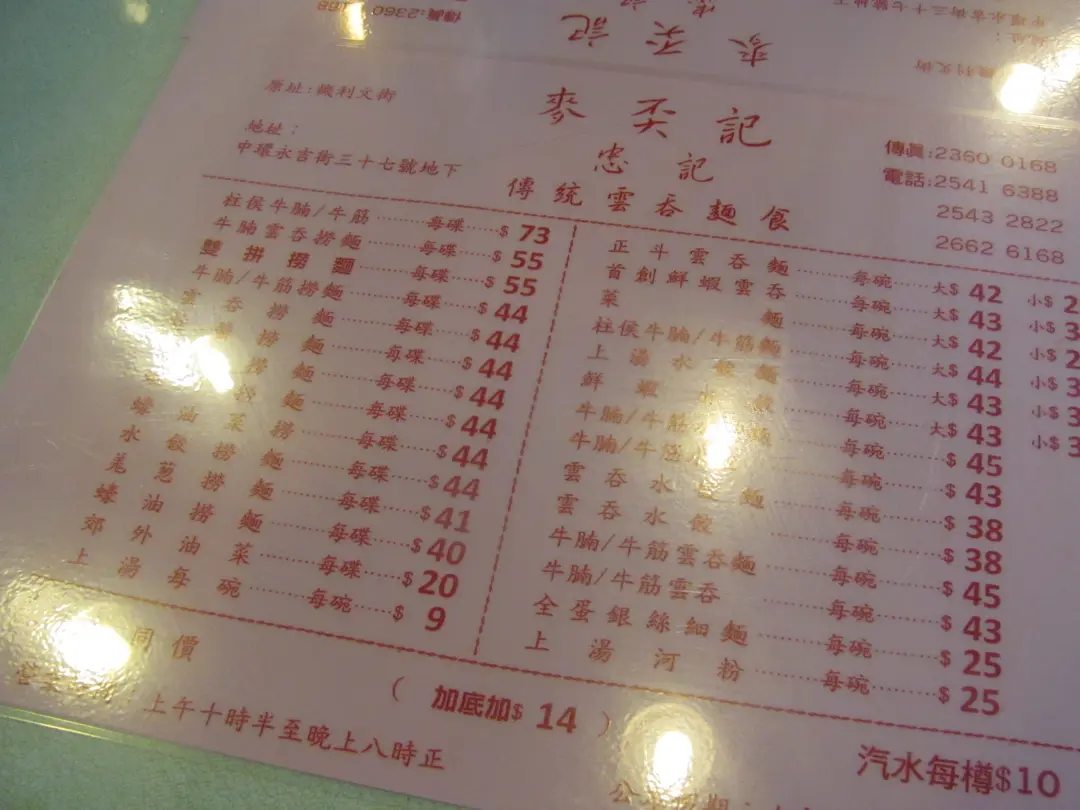 麥奀記
忠記
傳統雲吞麵食
原址:機利文街
地址：
中環永吉街三十七號地下
傳真:2360 0168
電話:2541 6388
2543 2822
2662 6168
柱侯牛腩/牛筋 每碟 $73
牛腩雲吞撈麵 每碟 $55
雙拼撈麵 每碟 $55
牛腩/牛筋撈麵 每碟 $44
雲吞撈麵 每碟 $44
撈麵 每碟 $44
撈麵 每碟 $44
撈麵 每碟 $44
蠔油菜撈麵 每碟 $44
水餃撈麵 每碟 $44
羌葱撈麵 每碟 $41
蠔油撈麵 每碟 $40
郊外油菜 每碟 $20
上湯每碗 每碗 $9
正斗雲吞麵 每碗 大$42 小$
首創鮮蝦雲吞 每碗 大$43 小$
菜麵 每碗 大$42 小$
柱侯牛腩/牛筋麵 每碗 大$44 小$
上湯水餃麵 每碗 大$43 小$
鮮蝦水餃 每碗 大$43 小$
牛腩/牛筋 每碗 $45
牛腩/牛筋 每碗 $43
雲吞水餃麵 每碗 $38
雲吞水餃 每碗 $38
牛腩/牛筋雲吞麵 每碗 $45
牛腩/牛筋雲吞 每碗 $43
全蛋銀絲細麵 每碗 $25
上湯河粉 每碗 $25
同價
( 加底加$ 14 )
上午十時半至晚上八時正
汽水每樽$10